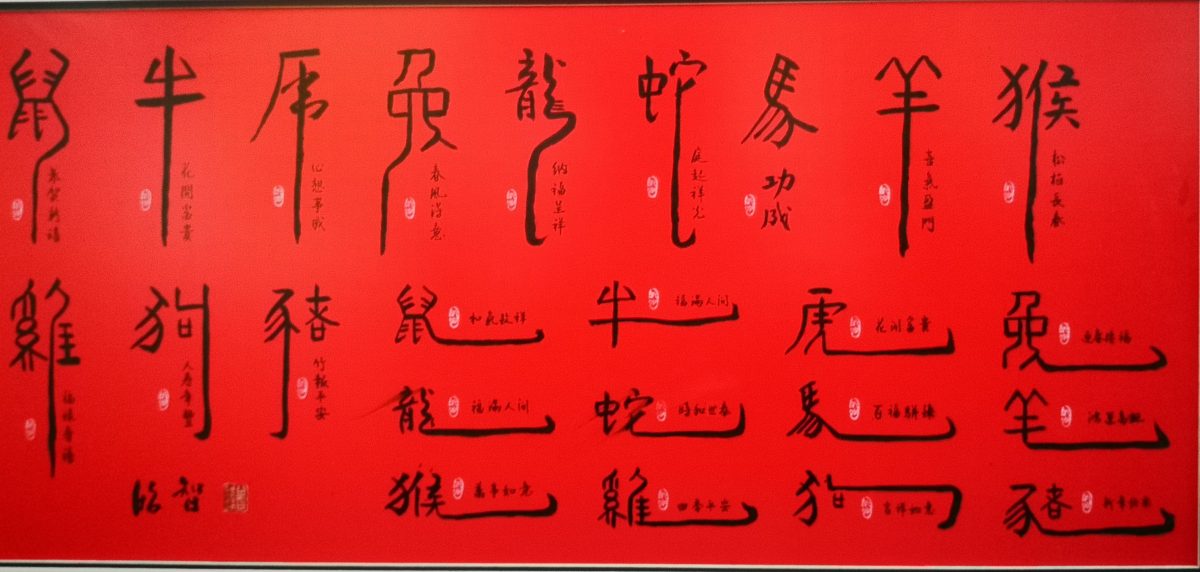 鼠
恭賀新禧
牛
花開富貴
虎
心想事成
兔
春風得意
龍
納福呈祥
蛇
庭起祥光
馬
功成
羊
喜氣盈門
猴
松柏長春
雞
狗
人壽年豐
豬
竹報平安
鼠
和氣致祥
牛
福滿人间
虎
花开富貴
兔
迎春接福
龍
福滿人间
蛇
時和世泰
馬
百福駢臻
羊
鴻運高照
猴
萬事如意
雞
四季平安
狗
吉祥如意
豬
智